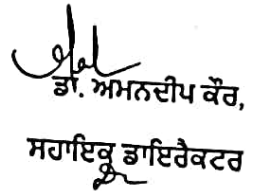 ਡਾ. ਅਮਨਦੀਪ ਕੌਰ,
ਸਹਾਇਕ ਡਾਇਰੈਕਟਰ